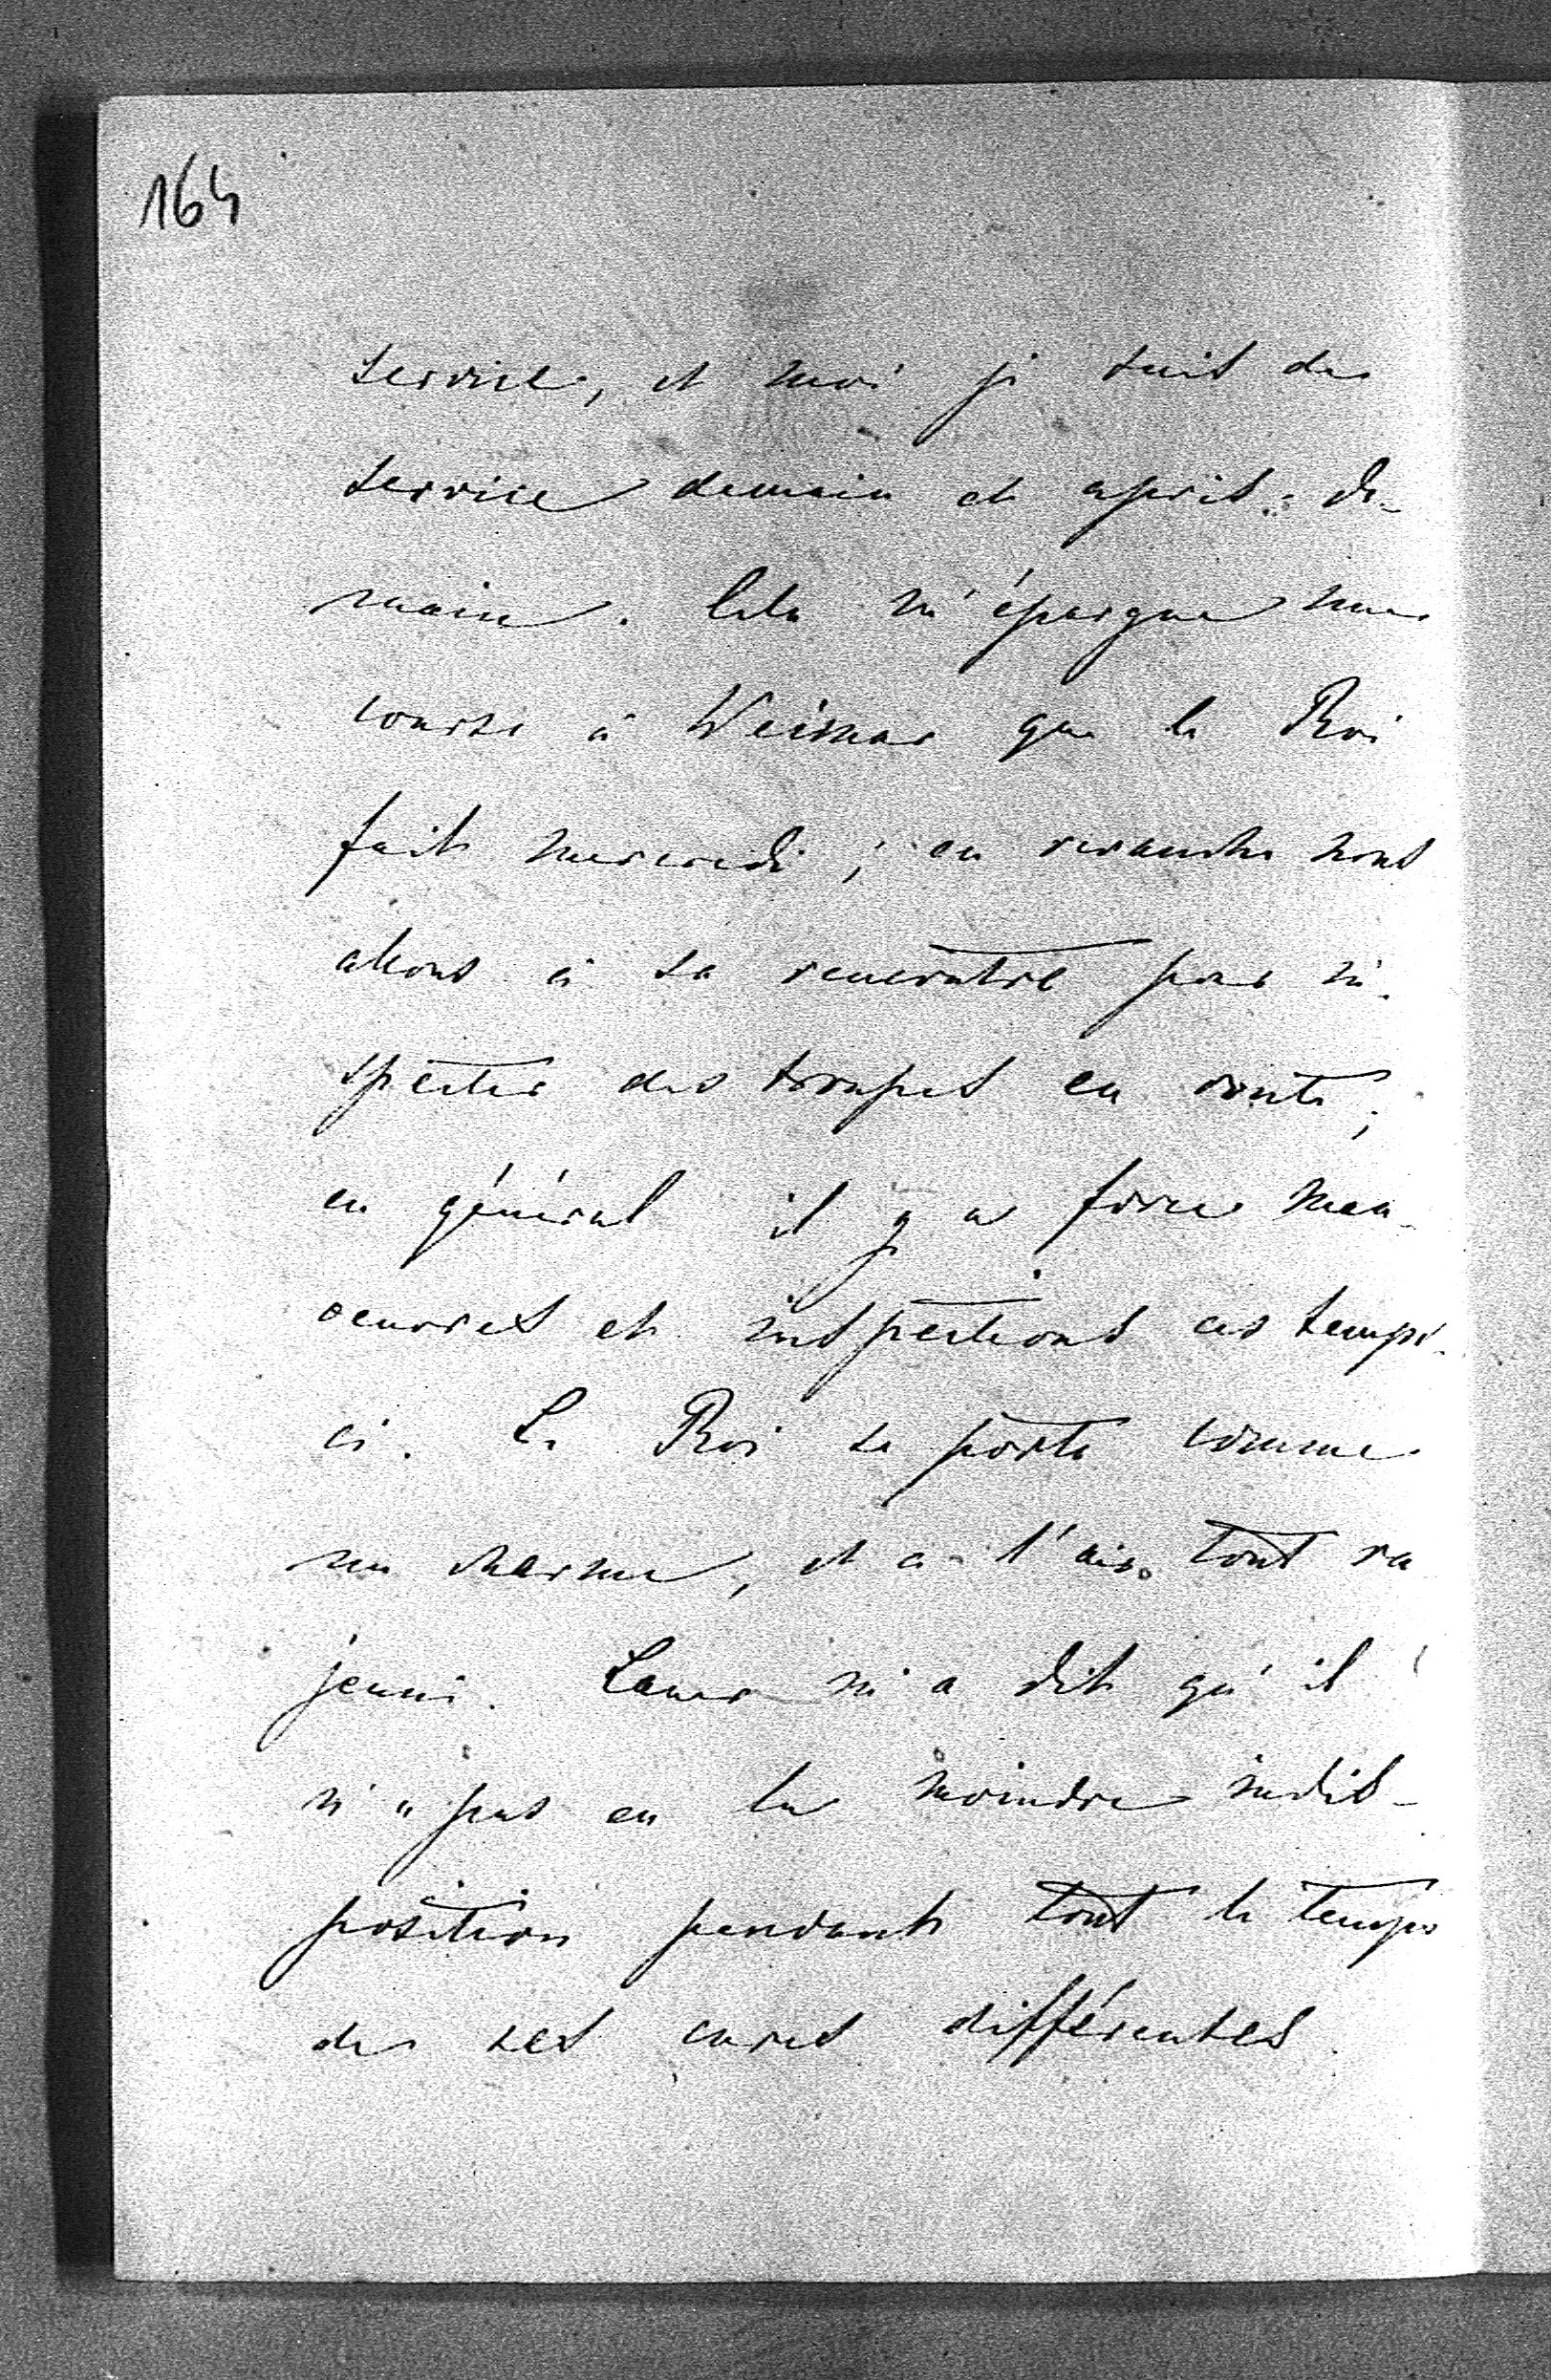 164
service, et moi je suis de
service demain et après-de-
main. Cela m'épargne une
course à Weimar que le Roi
fait mercredi; en revanche nous
allons à sa rencontre pour in-
specter des troupes en route;
en général il y a force man-
oeuvres et inspections ces temps-
ci. Le Roi se porte comme
un charme, et a l'air tout ra
jeuni. Lauer m'a dit qu'il
n'a pas eu la moindre indis-
position pendant tout le temps
de ses cures différentes